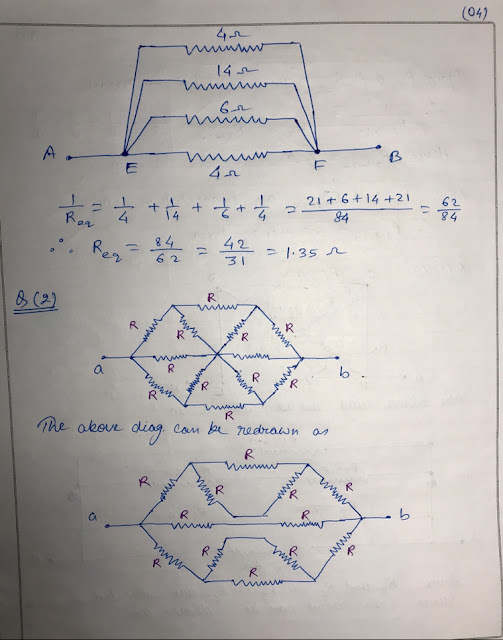 (04)
4Ω
14Ω
6Ω
A E F B
4Ω
1/Req = 1/4 + 1/14 + 1/6 + 1/4 = 21+6+14+21/84 = 62/84
∴ Req = 84/62 = 42/31 = 1.35 Ω
Q(2)
R
R R R R
a R R b.
R R R R
R
The above diag can be redrawn as
R
R R R R
a R R b
R R R R
R